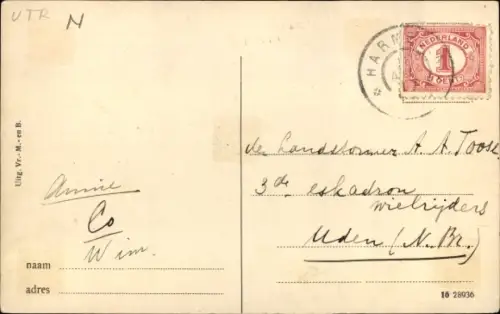 UTR N
HARM
NEDERLAND
1
CENT
den Landstormer A. A. Toose
3de eskadron
wielrijders
Uden (N. Br.)
Uitg. Vr.-M.-en B.
Annie
Co
Wim.
naam
adres
16 28936